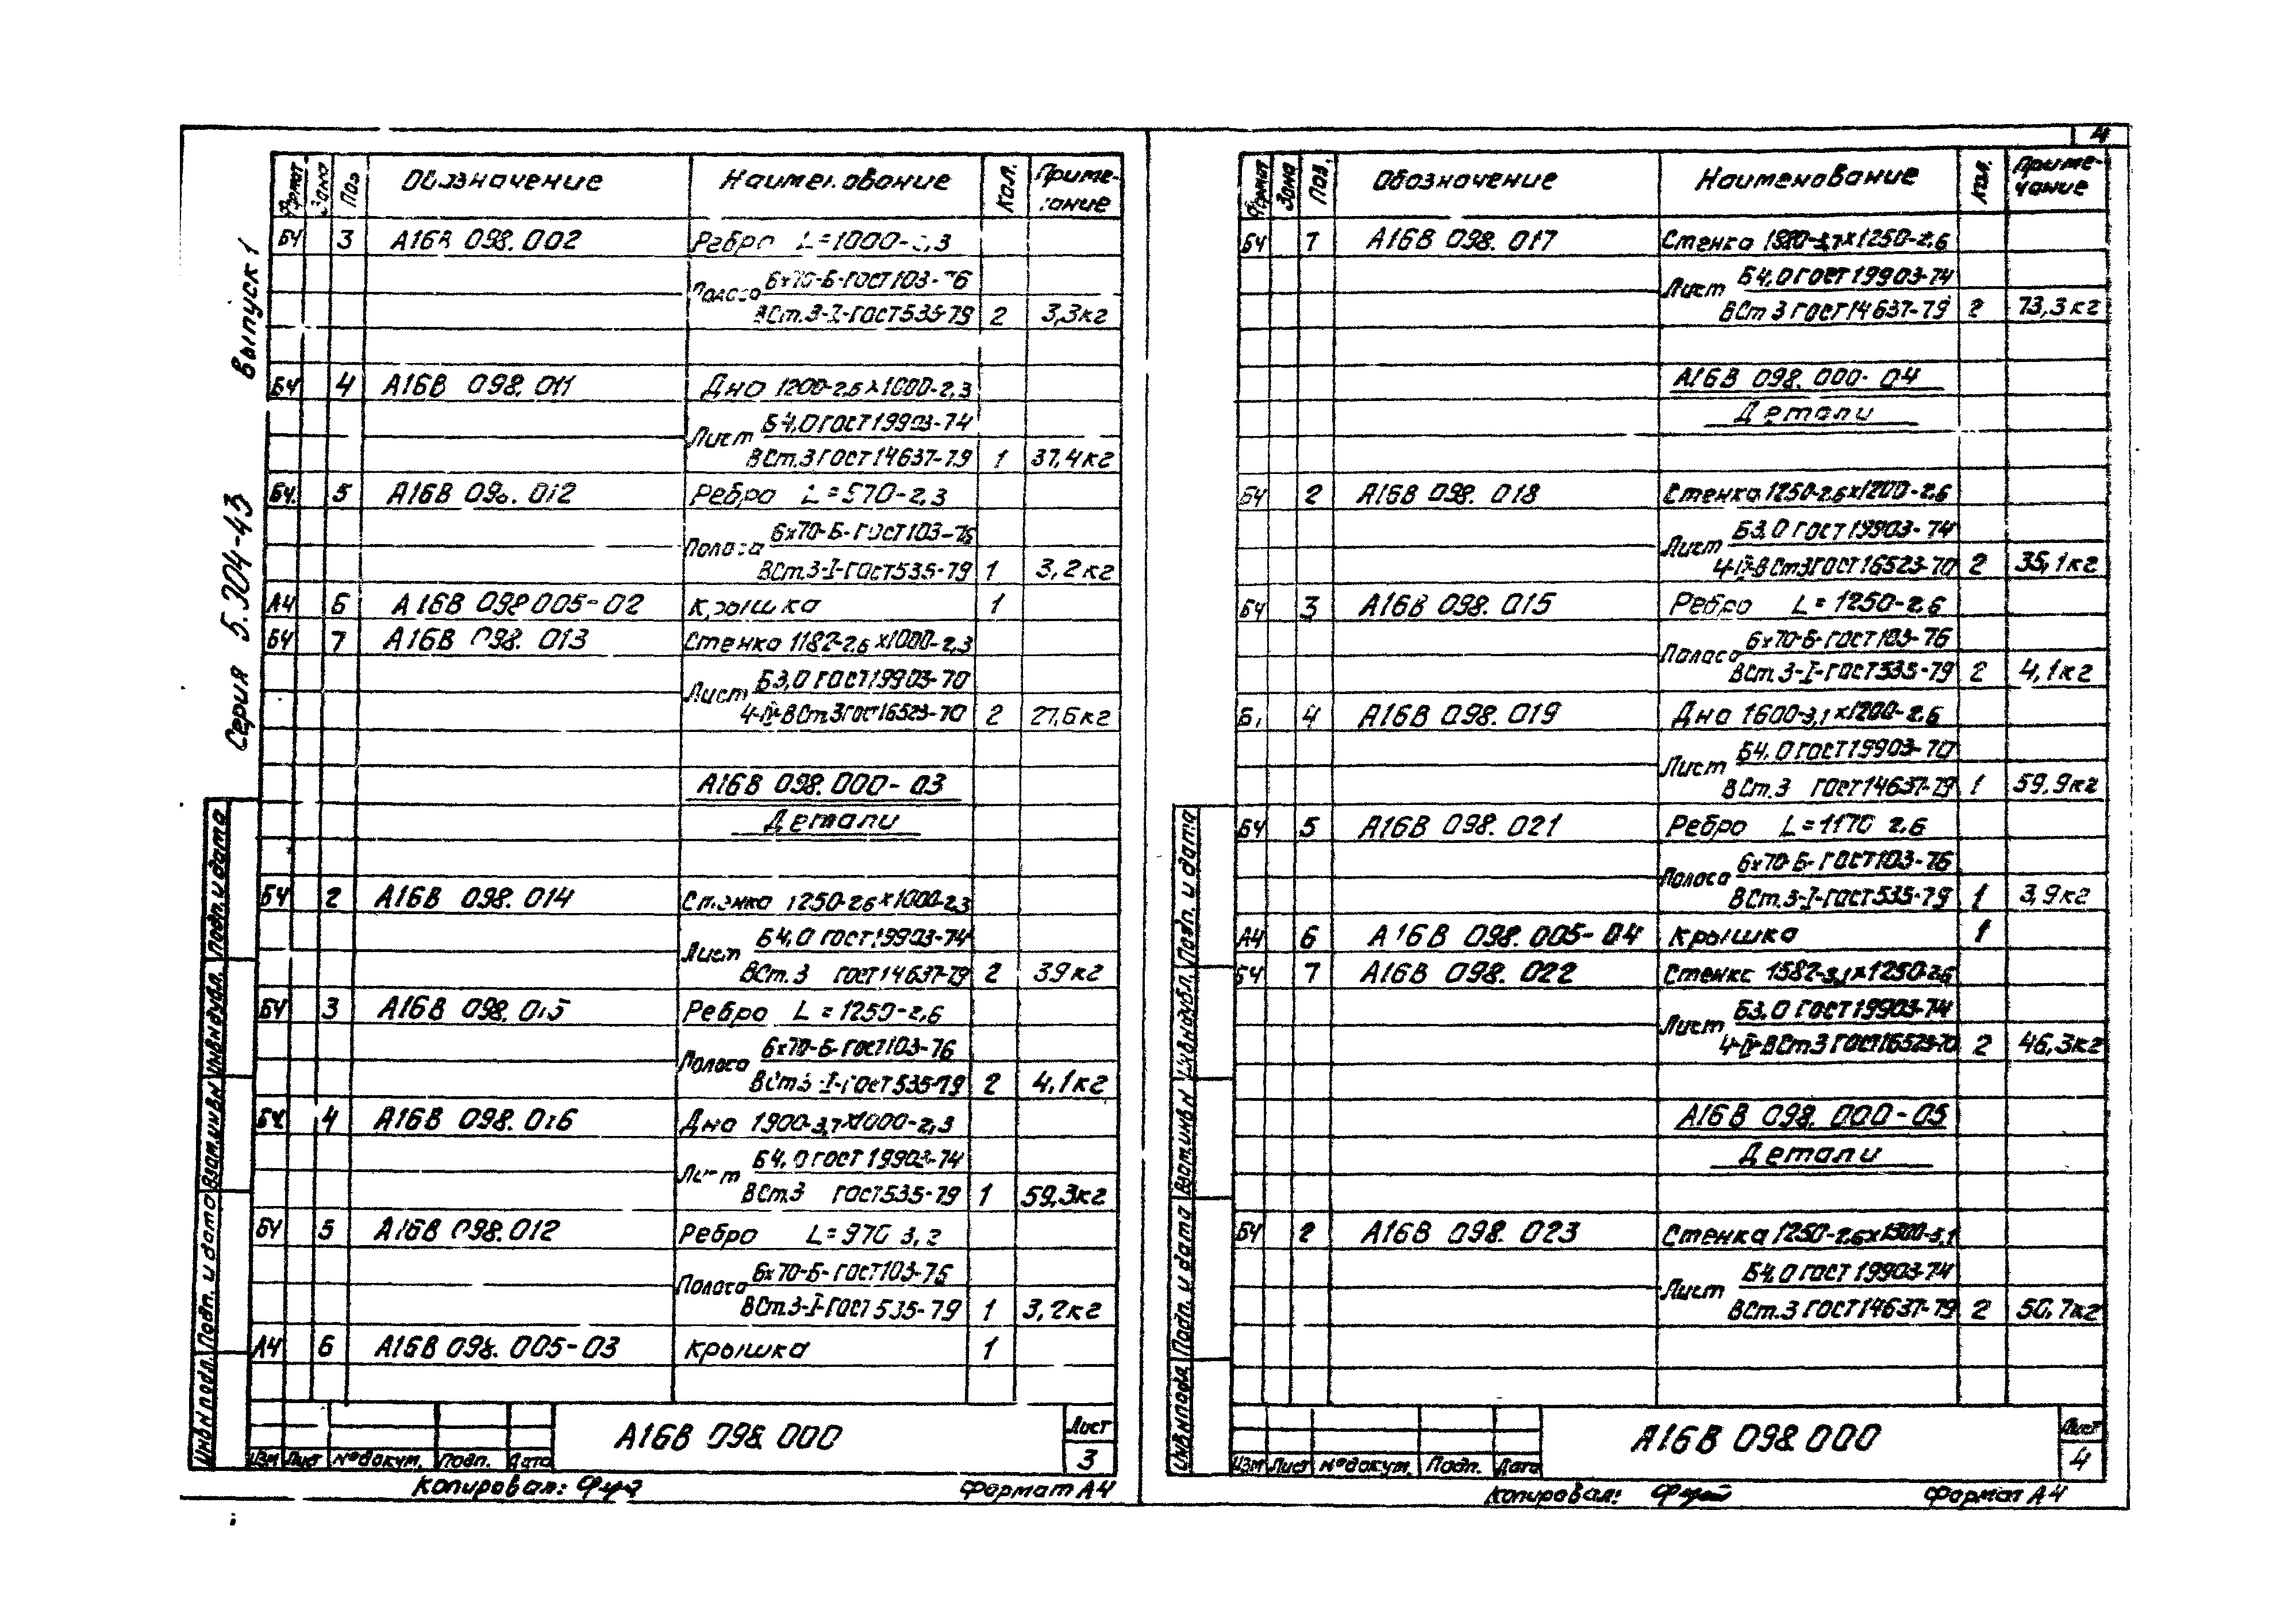 4
Серия 5.904-43 Выпуск 1
Формат Зона Поз Обозначение Наименование Кол. Приме-
чание
БЧ 3 А16В 098.002 Ребро L=1000-2,3
6х70-Б-ГОСТ103-76
Полоса
ВСт.3-I-ГОСТ535-79 2 3,3кг
БЧ 4 А16В 098.011 Дно 1200-2,6х1000-2,3
Б4,0 ГОСТ19903-74
Лист
ВСт.3 ГОСТ14637-79 1 37,4кг
БЧ. 5 А16В 098.012 Ребро L=570-2,3
6х70-Б-ГОСТ103-76
Полоса
ВСт.3-I-ГОСТ535-79 1 3,2кг
А4 6 А16В 098 005-02 Крышка 1
БЧ 7 А16В 098.013 Стенка 1182-2,6х1000-2,3
Б3,0 ГОСТ19903-70
Лист
4-IV-ВСт3ГОСТ16523-70 2 27,6кг
А16В 098.000-03
Детали
БЧ 2 А16В 098.014 Стенка 1250-2,6х1000-2,3
Б4,0 ГОСТ19903-74
Лист
ВСт.3 ГОСТ14637-79 2 39кг
БЧ 3 А16В 098.015 Ребро L=1250-2,6
6х70-Б-ГОСТ103-76
Полоса
ВСт3-I-ГОСТ535-79 2 4,1кг
БЧ 4 А16В 098.016 Дно 1900-3,7х1000-2,3
Б4,0 ГОСТ19903-74
Лист
ВСт.3 ГОСТ535-79 1 59,3кг
БЧ 5 А16В 098.012 Ребро L=970 3,2
6х70-Б-ГОСТ103-76
Полоса
ВСт.3-I-ГОСТ535-79 1 3,2кг
А4 6 А16В 098.005-03 Крышка 1
Инв№подл. Подп. и дата Взам.инв№ Инв№дубл. Подп. и дата
А16В 098 000
Лист
3
Изм Лист №докум. Подп. Дата
Копировал:
Формат А4
Формат Зона Поз. Обозначение Наименование Кол. Приме-
чание
БЧ 7 А16В 098.017 Стенка 1880-3,7х1250-2,6
Б4,0 ГОСТ19903-74
Лист
ВСт 3 ГОСТ14637-79 2 73,3кг
А16В 098.000-04
Детали
БЧ 2 А16В 098.018 Стенка 1250-2,6х1200-2,6
Б3,0 ГОСТ19903-74
Лист
4-IV-ВСт3ГОСТ16523-70 2 35,1кг
БЧ 3 А16В 098.015 Ребро L=1250-2,6
6х70-Б-ГОСТ103-76
Полоса
ВСт.3-I-ГОСТ535-79 2 4,1кг
4 А16В 098.019 Дно 1600-3,1х1200-2,6
Б4,0 ГОСТ19903-70
Лист
ВСт.3 ГОСТ14637-79 1 59,9кг
БЧ 5 А16В 098.021 Ребро L=1170 2,6
6х70-Б-ГОСТ103-76
Полоса
ВСт.3-I-ГОСТ535-79 1 3,9кг
А4 6 А16В 098.005-04 Крышка 1
БЧ 7 А16В 098.022 Стенка 1582-3,1х1250-2,6
Б3,0 ГОСТ19903-74
Лист
4-IV-ВСт3 ГОСТ16523-70 2 46,3кг
А16В 098.000-05
Детали
БЧ 2 А16В 098.023 Стенка 1250-2,6х1300-3,1
Б4,0 ГОСТ 19903-74
Лист
ВСт.3 ГОСТ14637-79 2 50,7кг
Инв№подл Подп. и дата Взам инв№ Инв№дубл. Подп. и дата
А16В 098 000
Лист
4
Изм Лист №докум. Подп. Дата
Копировал:
Формат А4